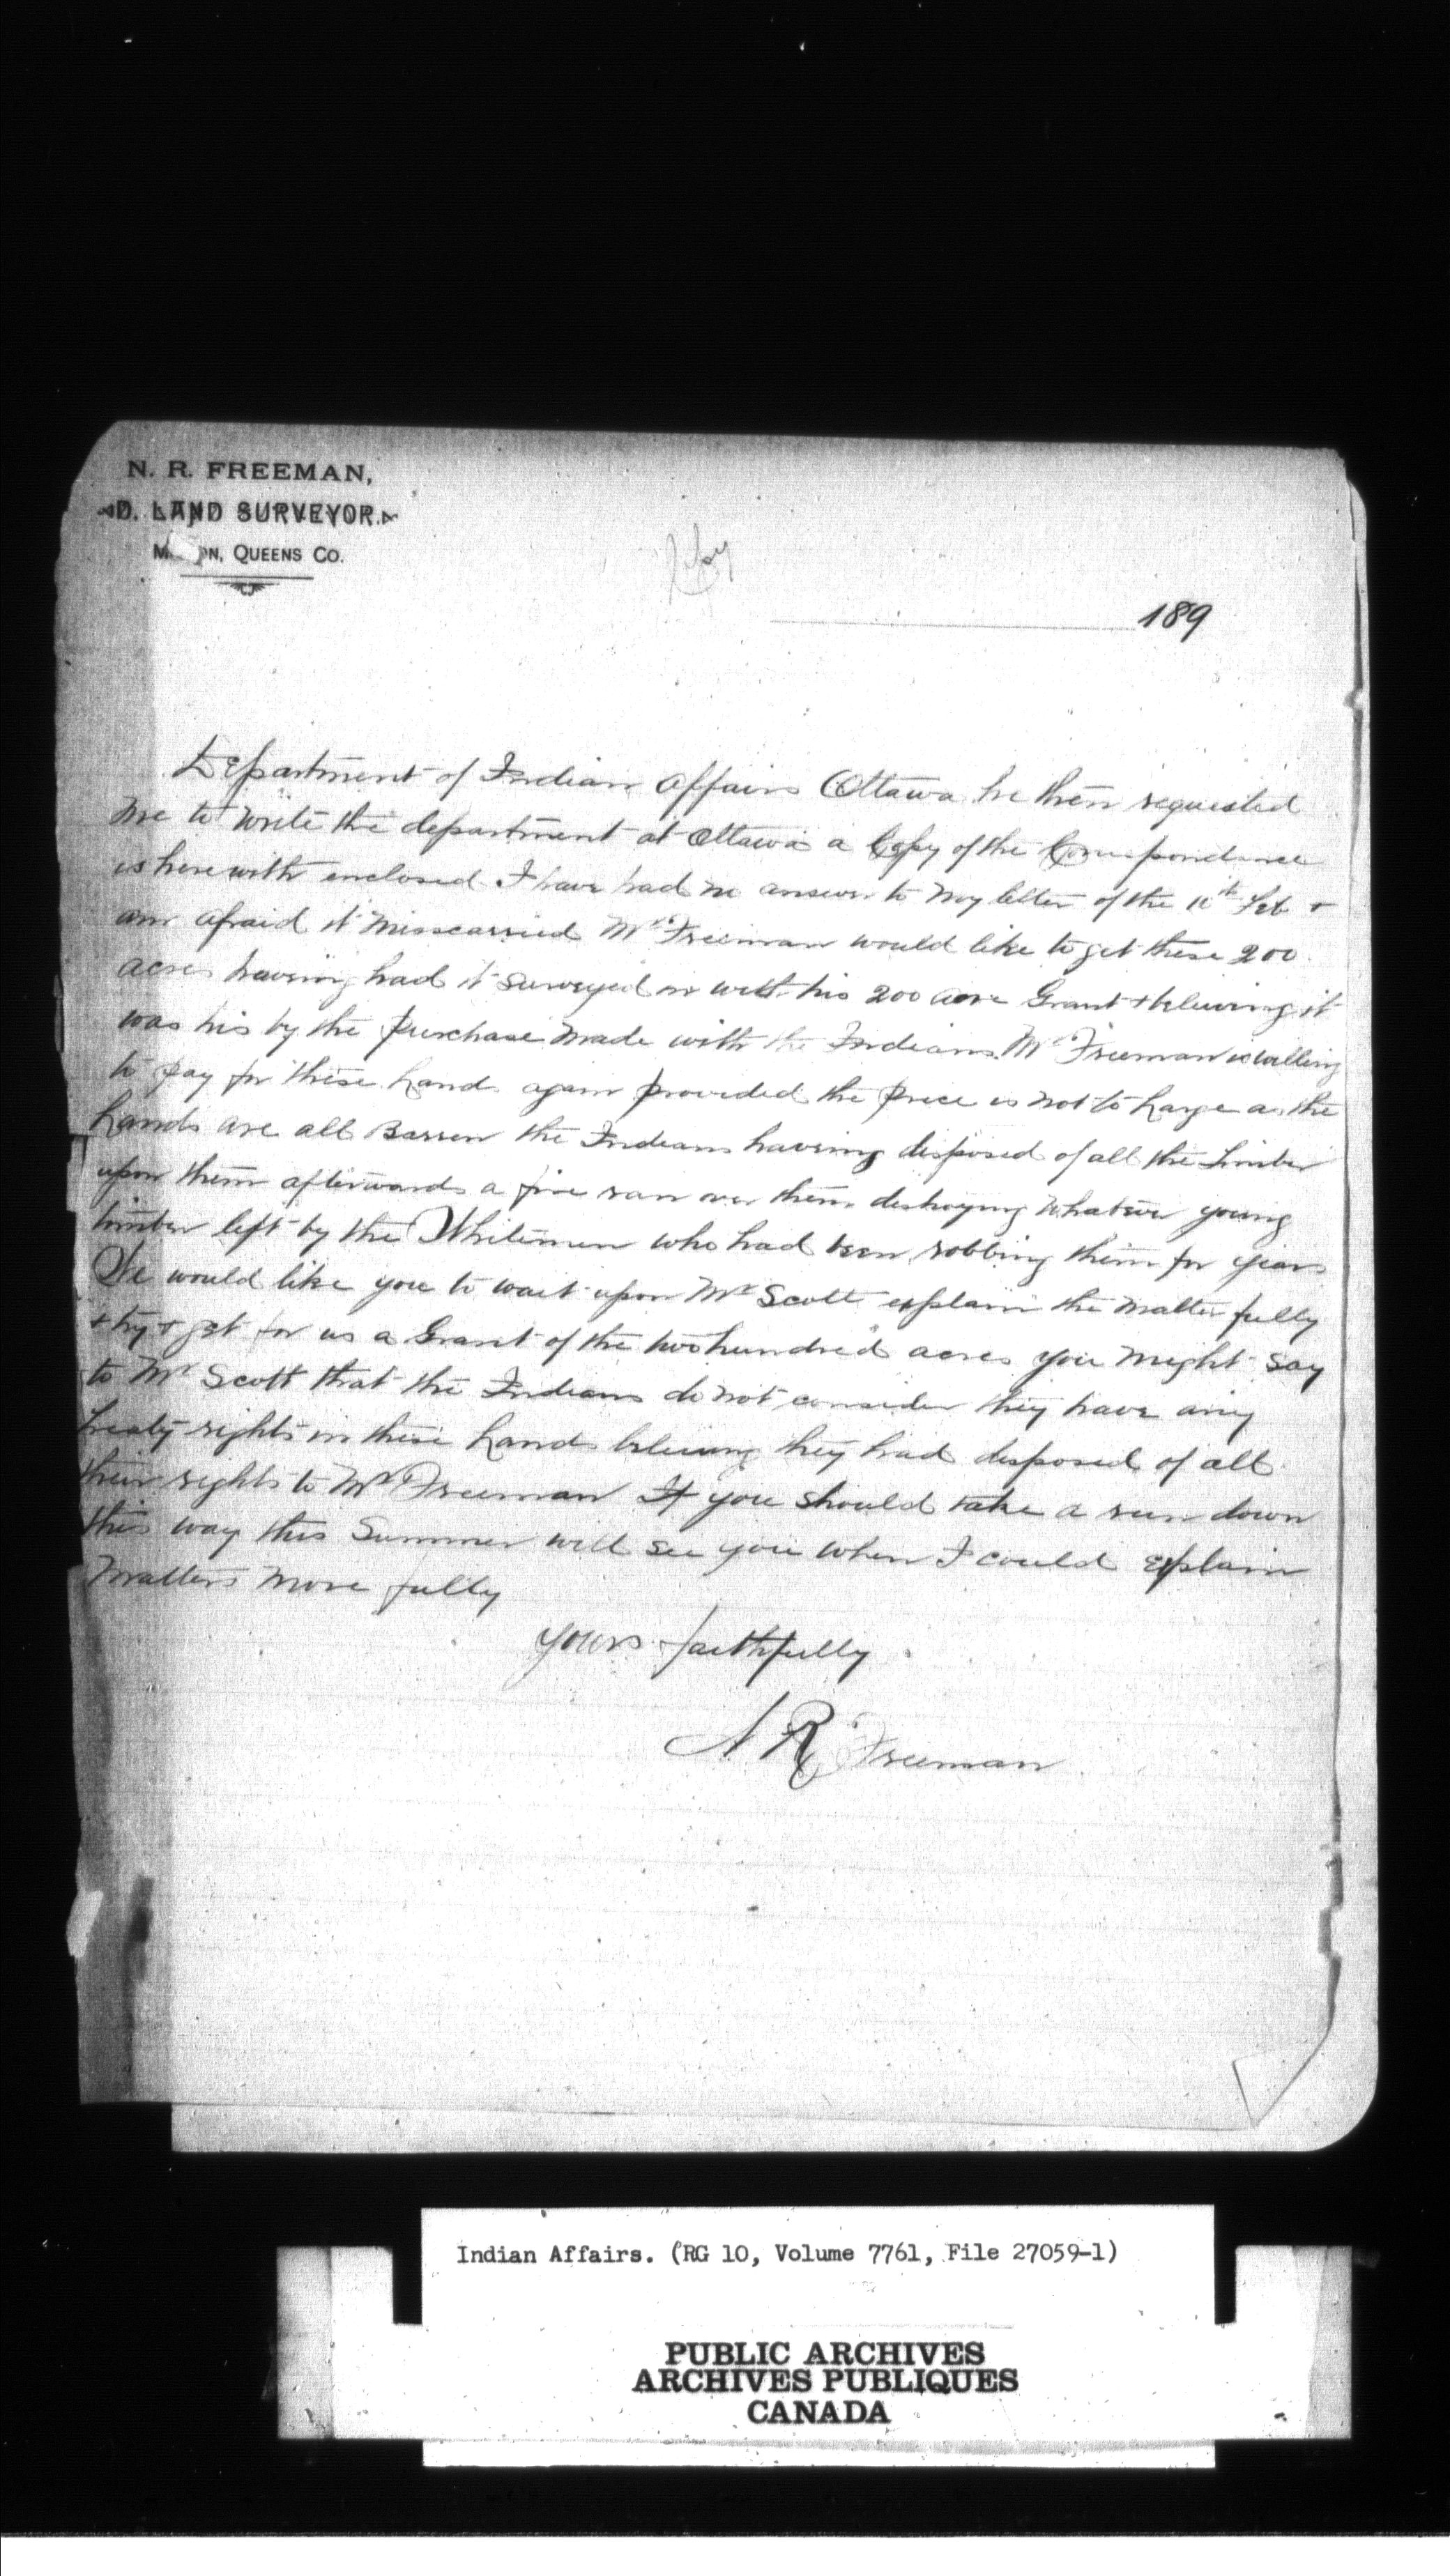 N. R. FREEMAN,
D. LAND SURVEYOR.
M  ON, QUEENS CO.
Copy
189
Department of Indian Affairs Ottawa he then requested
me to write the department at Ottawa a Copy of the Correspondence
is here with enclosed I have had no answer to my letter of the Feb +
am afraid it misscarried Mr Freeman would like to get these 200
acres having had it surveyed in with his 200 acre Grant + beleiving it
was his by the purchase made with the Indians. Mr Freeman is willing
to pay for these Lands again provided the price is not to Large as the
Lands are all Barren the Indians having disposed of all the timber
upon them afterwards a fire ran over them destroying whatever young
timber left by the Whitemen who had been robbing them for years
We would like you to wait upon Mr Scott explain the matter fully
+ try + get for us a Grant of the two hundred acres you might say
to Mr Scott that the Indians do not consider they have any
treaty rights in these Lands beleiving they had disposed of all
their rights to Mr Freeman If you should take a run down
this way this Summer will see you when I could Explain
matters more fully
yours faithfully
N R Freeman
Indian Affairs. (RG 10, Volume 7761, File 27059-1)
PUBLIC ARCHIVES
ARCHIVES PUBLIQUES
CANADA